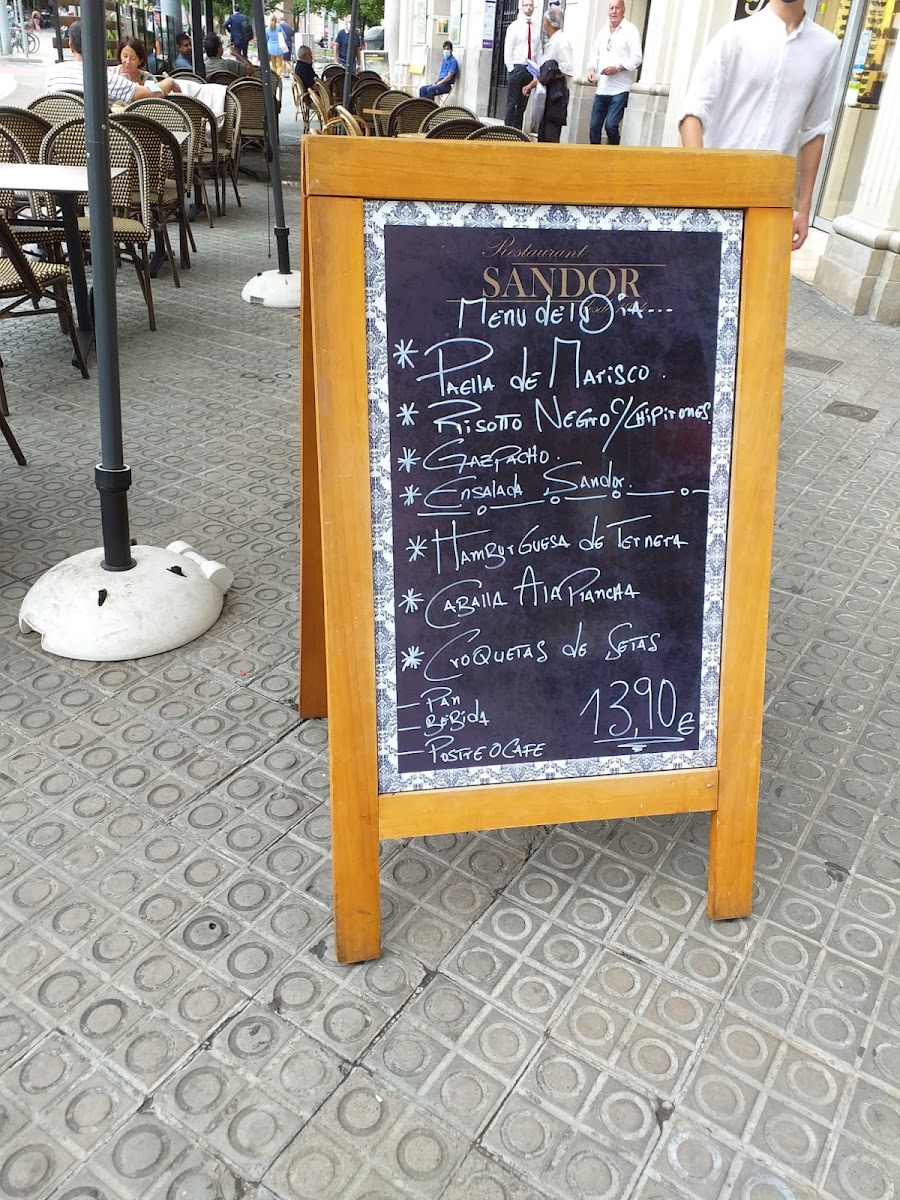 Restaurant
SANDOR
Menu del Dia---
* Paella de Marisco.
* Risotto Negro c/chipirones
* Gazpacho.
* Ensalada Sandor.
* Hamburguesa de Ternera
* Caballa A la Plancha
* Croquetas de Setas
— Pan
— Bebida
— Postre o Cafe
13,90€